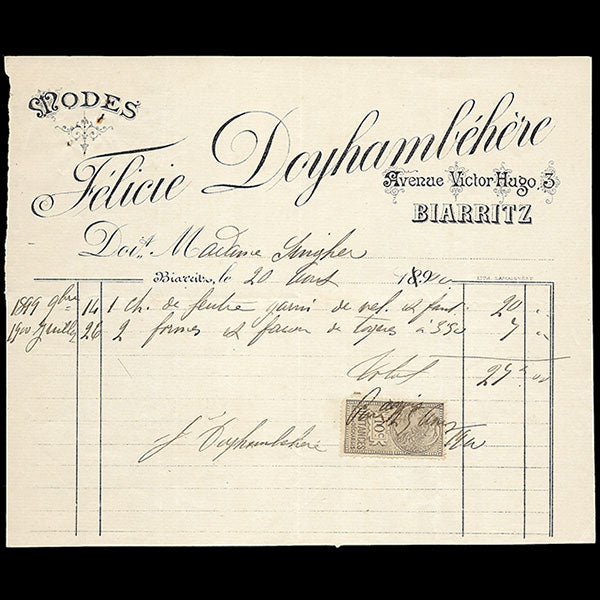 MODES
Félicie Doyhambéhère
Avenue Victor Hugo. 3
BIARRITZ
Doit Madame Singher
Biarritz, le 20 Aout
1899 9bre 14 1 ch. de feutre garni de vel. et fant. 20 "
1900 Juillet 26 2 formes et façon de toques à 3.50 7 "
Total 27 "
10c
CENTIMES
F. Doyhambéhère